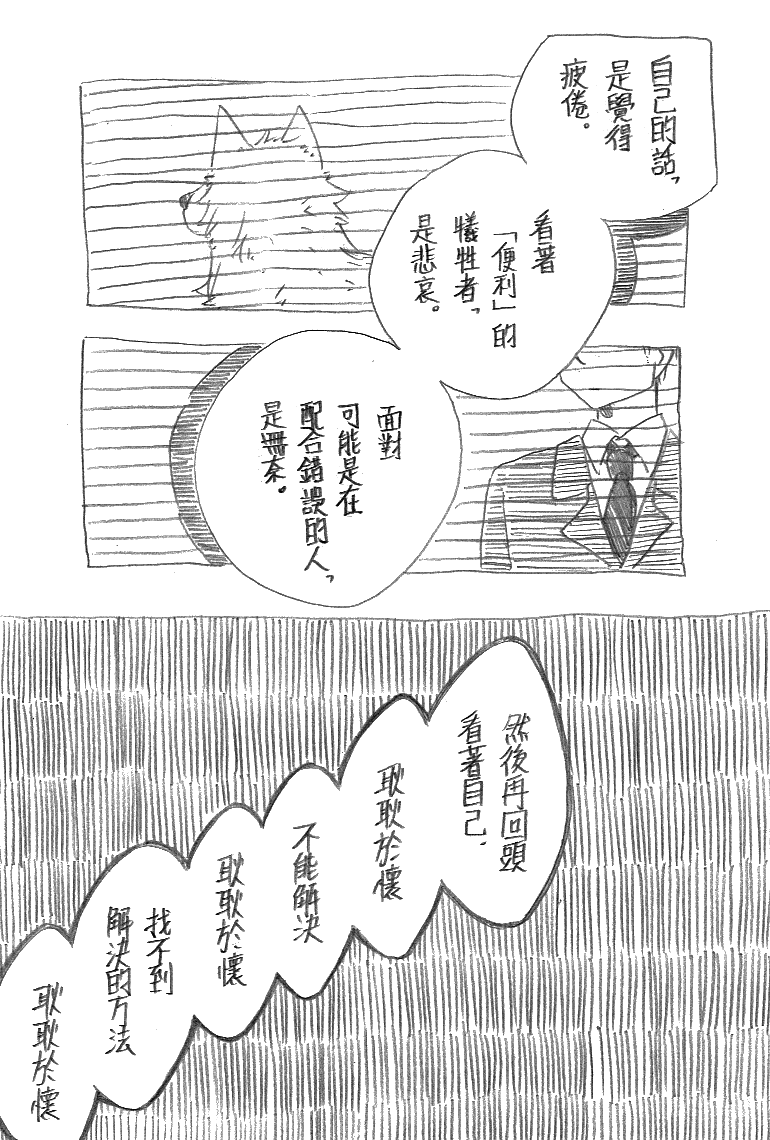 自己的話，
是覺得
疲倦。
看著
「便利」的
犧牲者，
是悲哀。
面對
可能是在
配合錯誤的人，
是無奈。
然後再回頭
看著自己．
耿耿於懷
不能解決
耿耿於懷
找不到
解決的方法
耿耿於懷